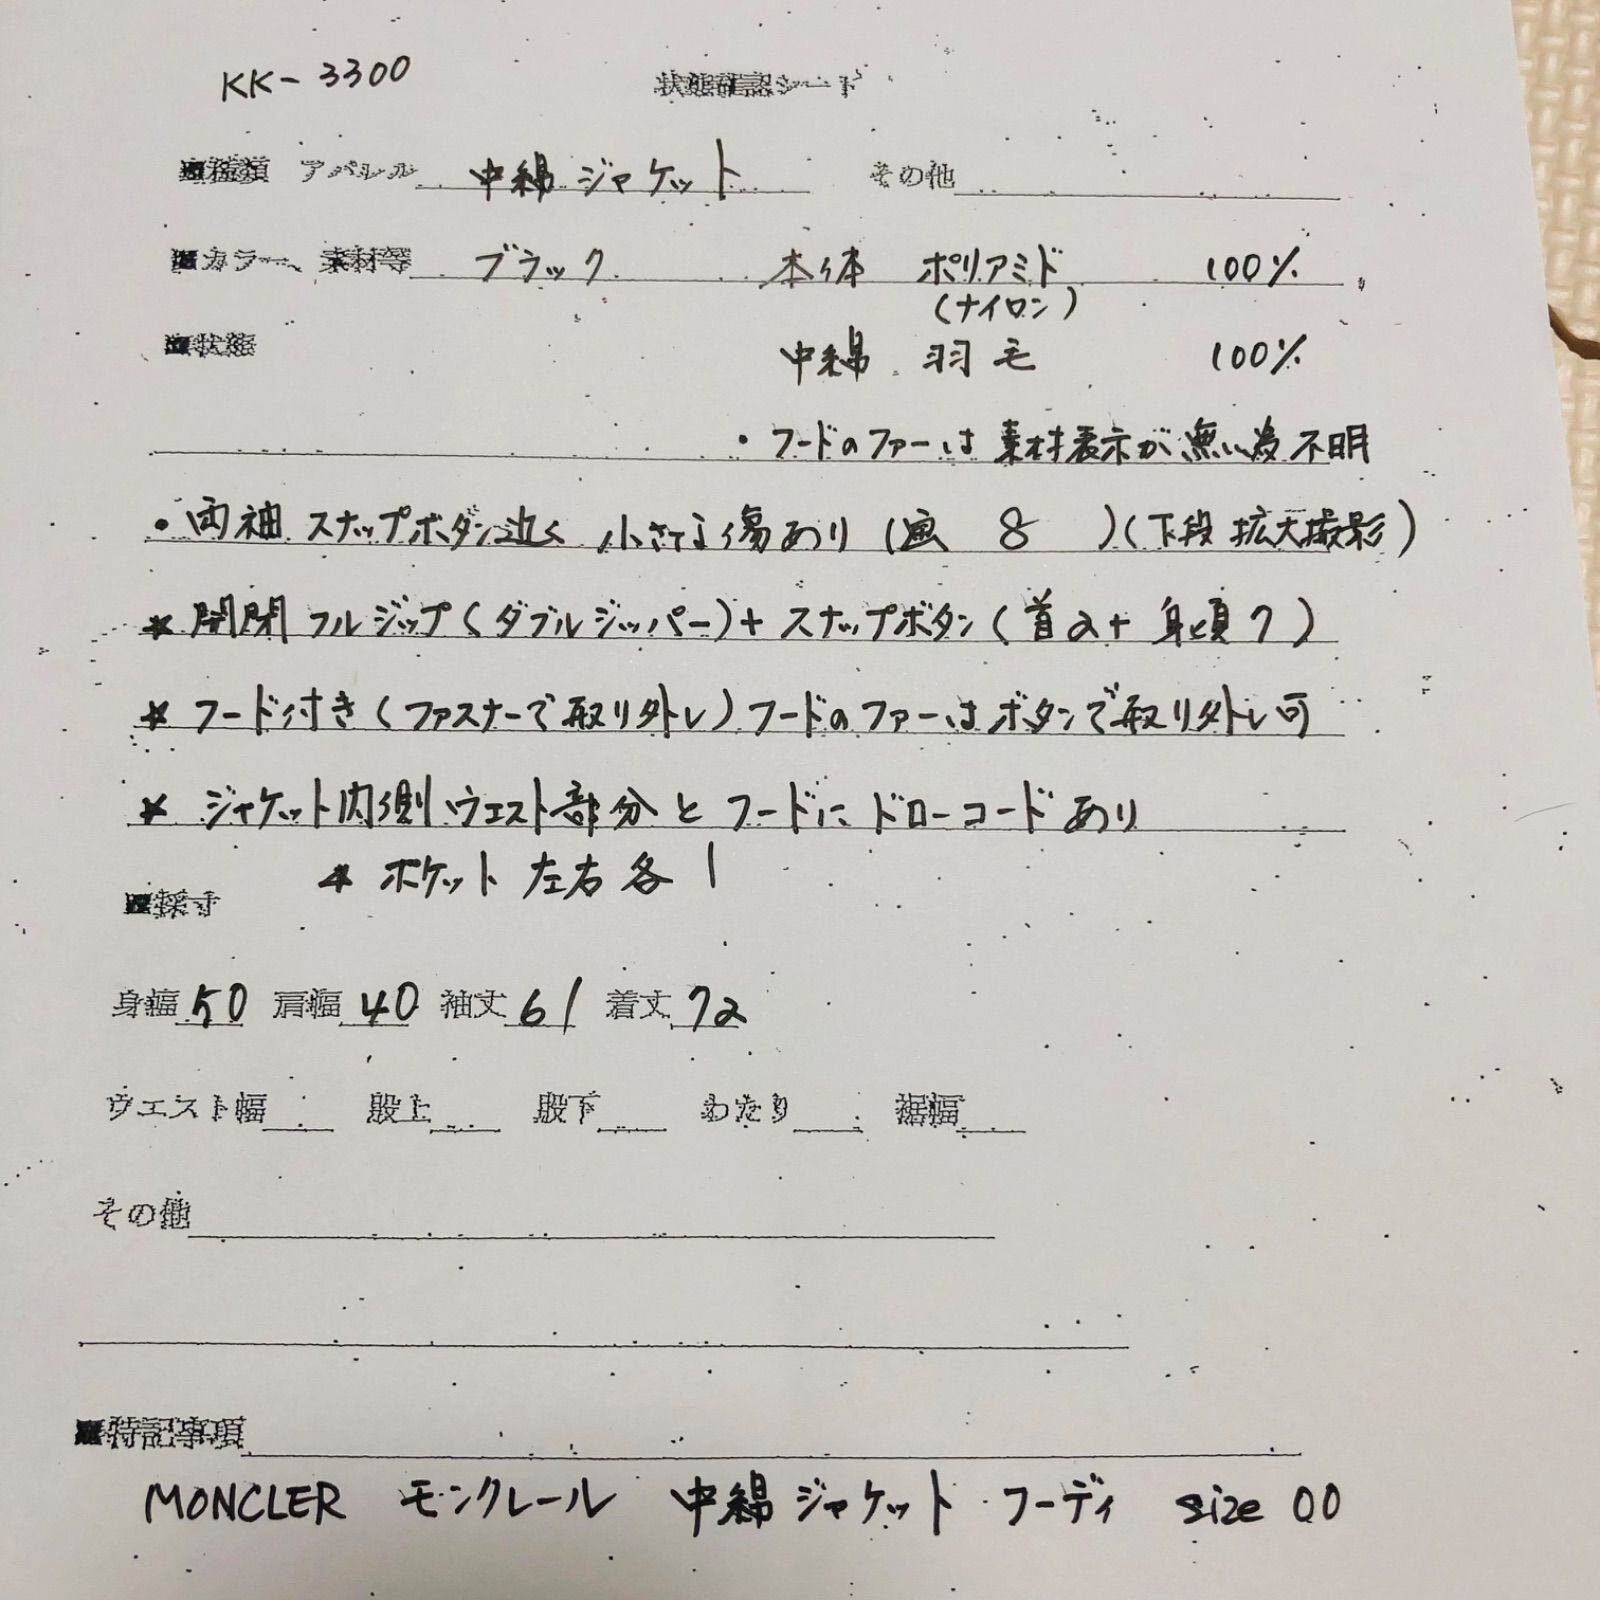 KK-3300
状態確認シート
■種類 アパレル 中綿ジャケット その他
■カラー、素材等 ブラック 本体 ポリアミド 100%
(ナイロン)
■状態 中綿 羽毛 100%
・フードのファーは素材表示が無い為不明
・両袖 スナップボタン近く 小さな傷あり (画 8 )(下段 拡大撮影)
* 開閉 フルジップ(ダブルジッパー)+ スナップボタン(首2+ 身頃7)
* フード付き(ファスナーで取り外し)フードのファーはボタンで取り外し可
* ジャケット内側ウエスト部分とフードにドローコードあり
* ポケット 左右 各 1
■採寸
身幅 50 肩幅 40 袖丈 61 着丈 72
ウエスト幅 股上 股下 わたり 裾幅
その他
■特記事項
MONCLER モンクレール 中綿ジャケット フーディ size 00